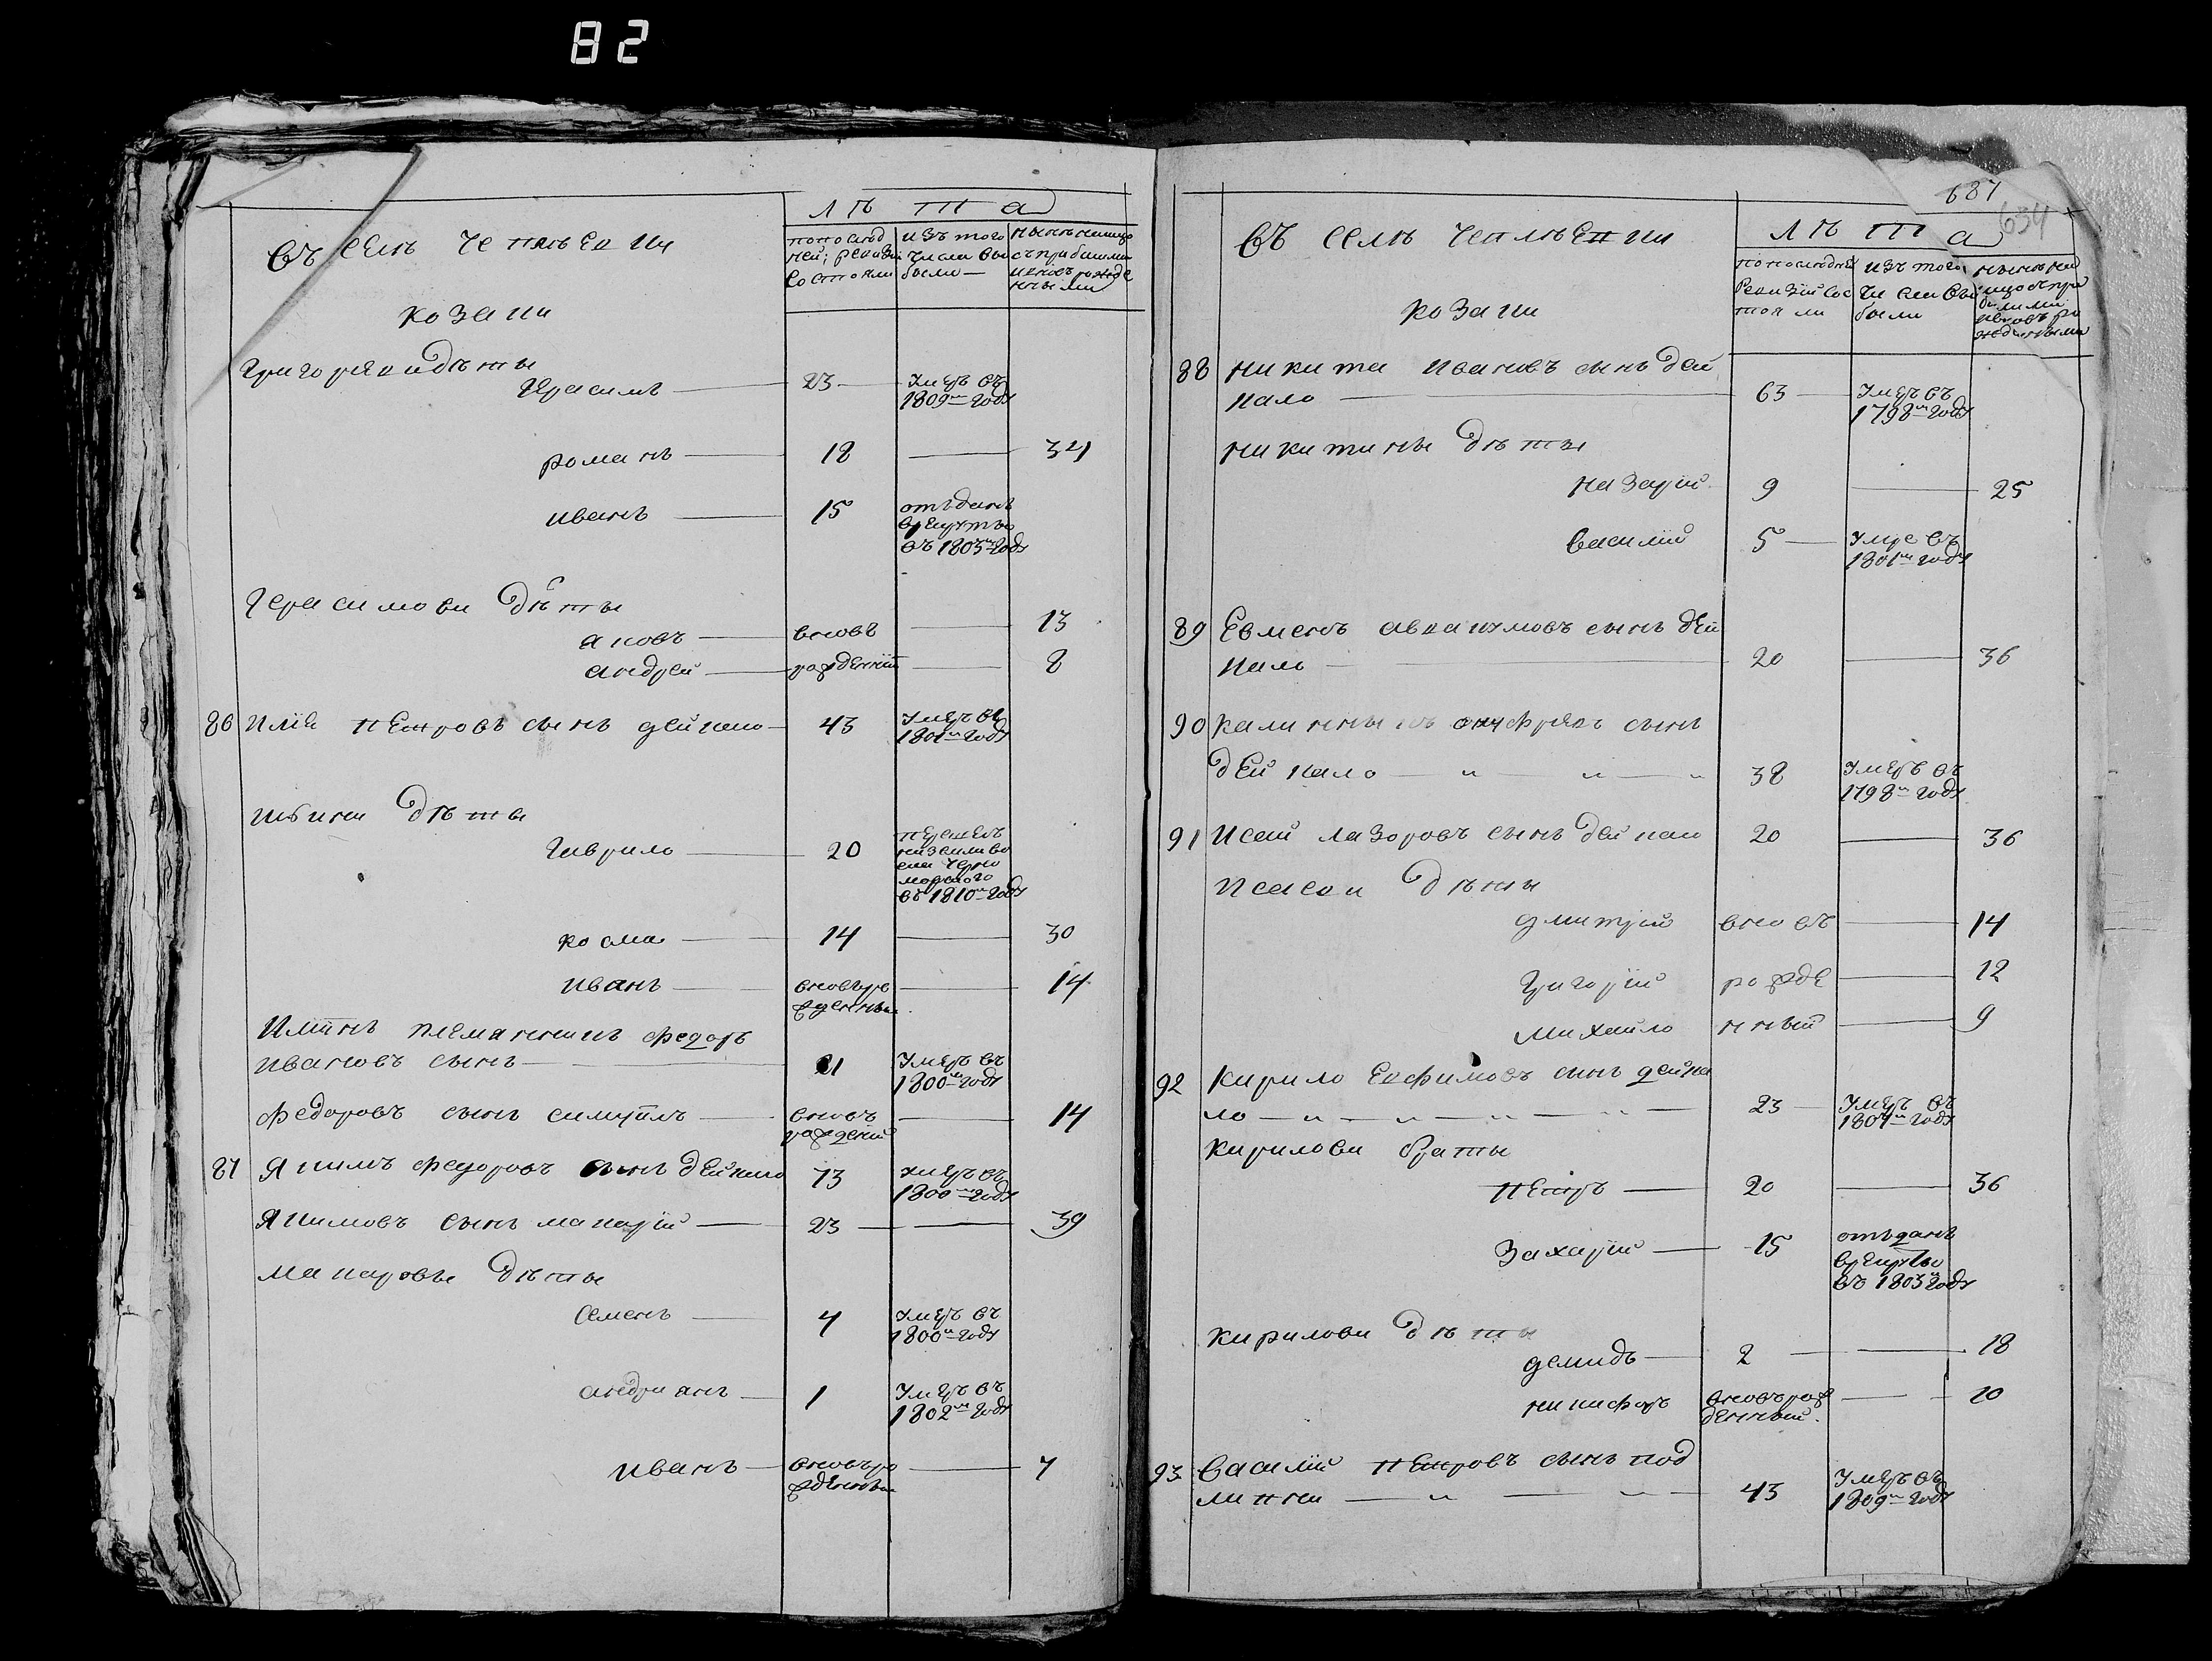 82
Лѣта
Въ селѣ Чеплѣевки
по послѣд
ней ревизи
состояли
изъ того
числа вы
были
нынѣ налицо
съ прибылими
и новъ рожде
нными
козаки
Григориеви дѣты
Герасимъ 23 умеръ въ
1809м году
романъ 18 34
иванъ 15 отъданъ
врекруты
въ 1803м году
Герасимови дѣты
вновъ 13
андрей рожденніи 8
86 Илія Петровъ сынъ дейкало 43 умеръ въ
1801м году
дѣты
Гаврило 20 перешелъ
Черно
морского
въ 1810м году
косма 14 30
иванъ вновъро 14
жденный
племянникъ федоръ
ивановъ сынъ умеръ въ
1800м году
федоровъ сынъ самуилъ вновъ 14
рожденій
87 Якимъ федоровъ сынъ дейкало 73 умеръ въ
1800м году
Якимовъ сынъ макарій 23 39
макаровы дѣты
семенъ 4 умеръ въ
1800м году
андриянъ 1 умеръ въ
1802м году
иванъ вновъро 7
жденный
687
634
Лѣта
Въ селѣ Чеплѣевки
по последней
ревизіи сос
тояли
изъ того
числа вы
были
нынѣ на
лицо съ при
билими
и вновъ ро
жденными
козаки
88 никита ивановъ сынъ дей
кало 63 умеръ въ
1798м году
никитины дѣты
назарій 9 25
василій 5 умре въ
1801м году
89 Евменъ авакумовъ сынъ дей
кало 20 36
90 калинныкъ онуфріевъ сынъ
дейкало 38 умеръ въ
1798м году
91 Исай лазоровъ сынъ дейкало 20 36
Исаеви дѣты
дмитрій вновъ 14
григорій рожде 12
михайло нный 9
92 кирило Ефимовъ сынъ дейка
ло 23 умеръ въ
1807м году
кирилови браты
петръ 20 36
захарій 15 отъданъ
врекруты
въ 1803м году
кирилови дѣты
демидъ 2 18
никифоръ вновърож 10
денный
93 василій петровъ сынъ под
липни 43 умеръ въ
1809м году